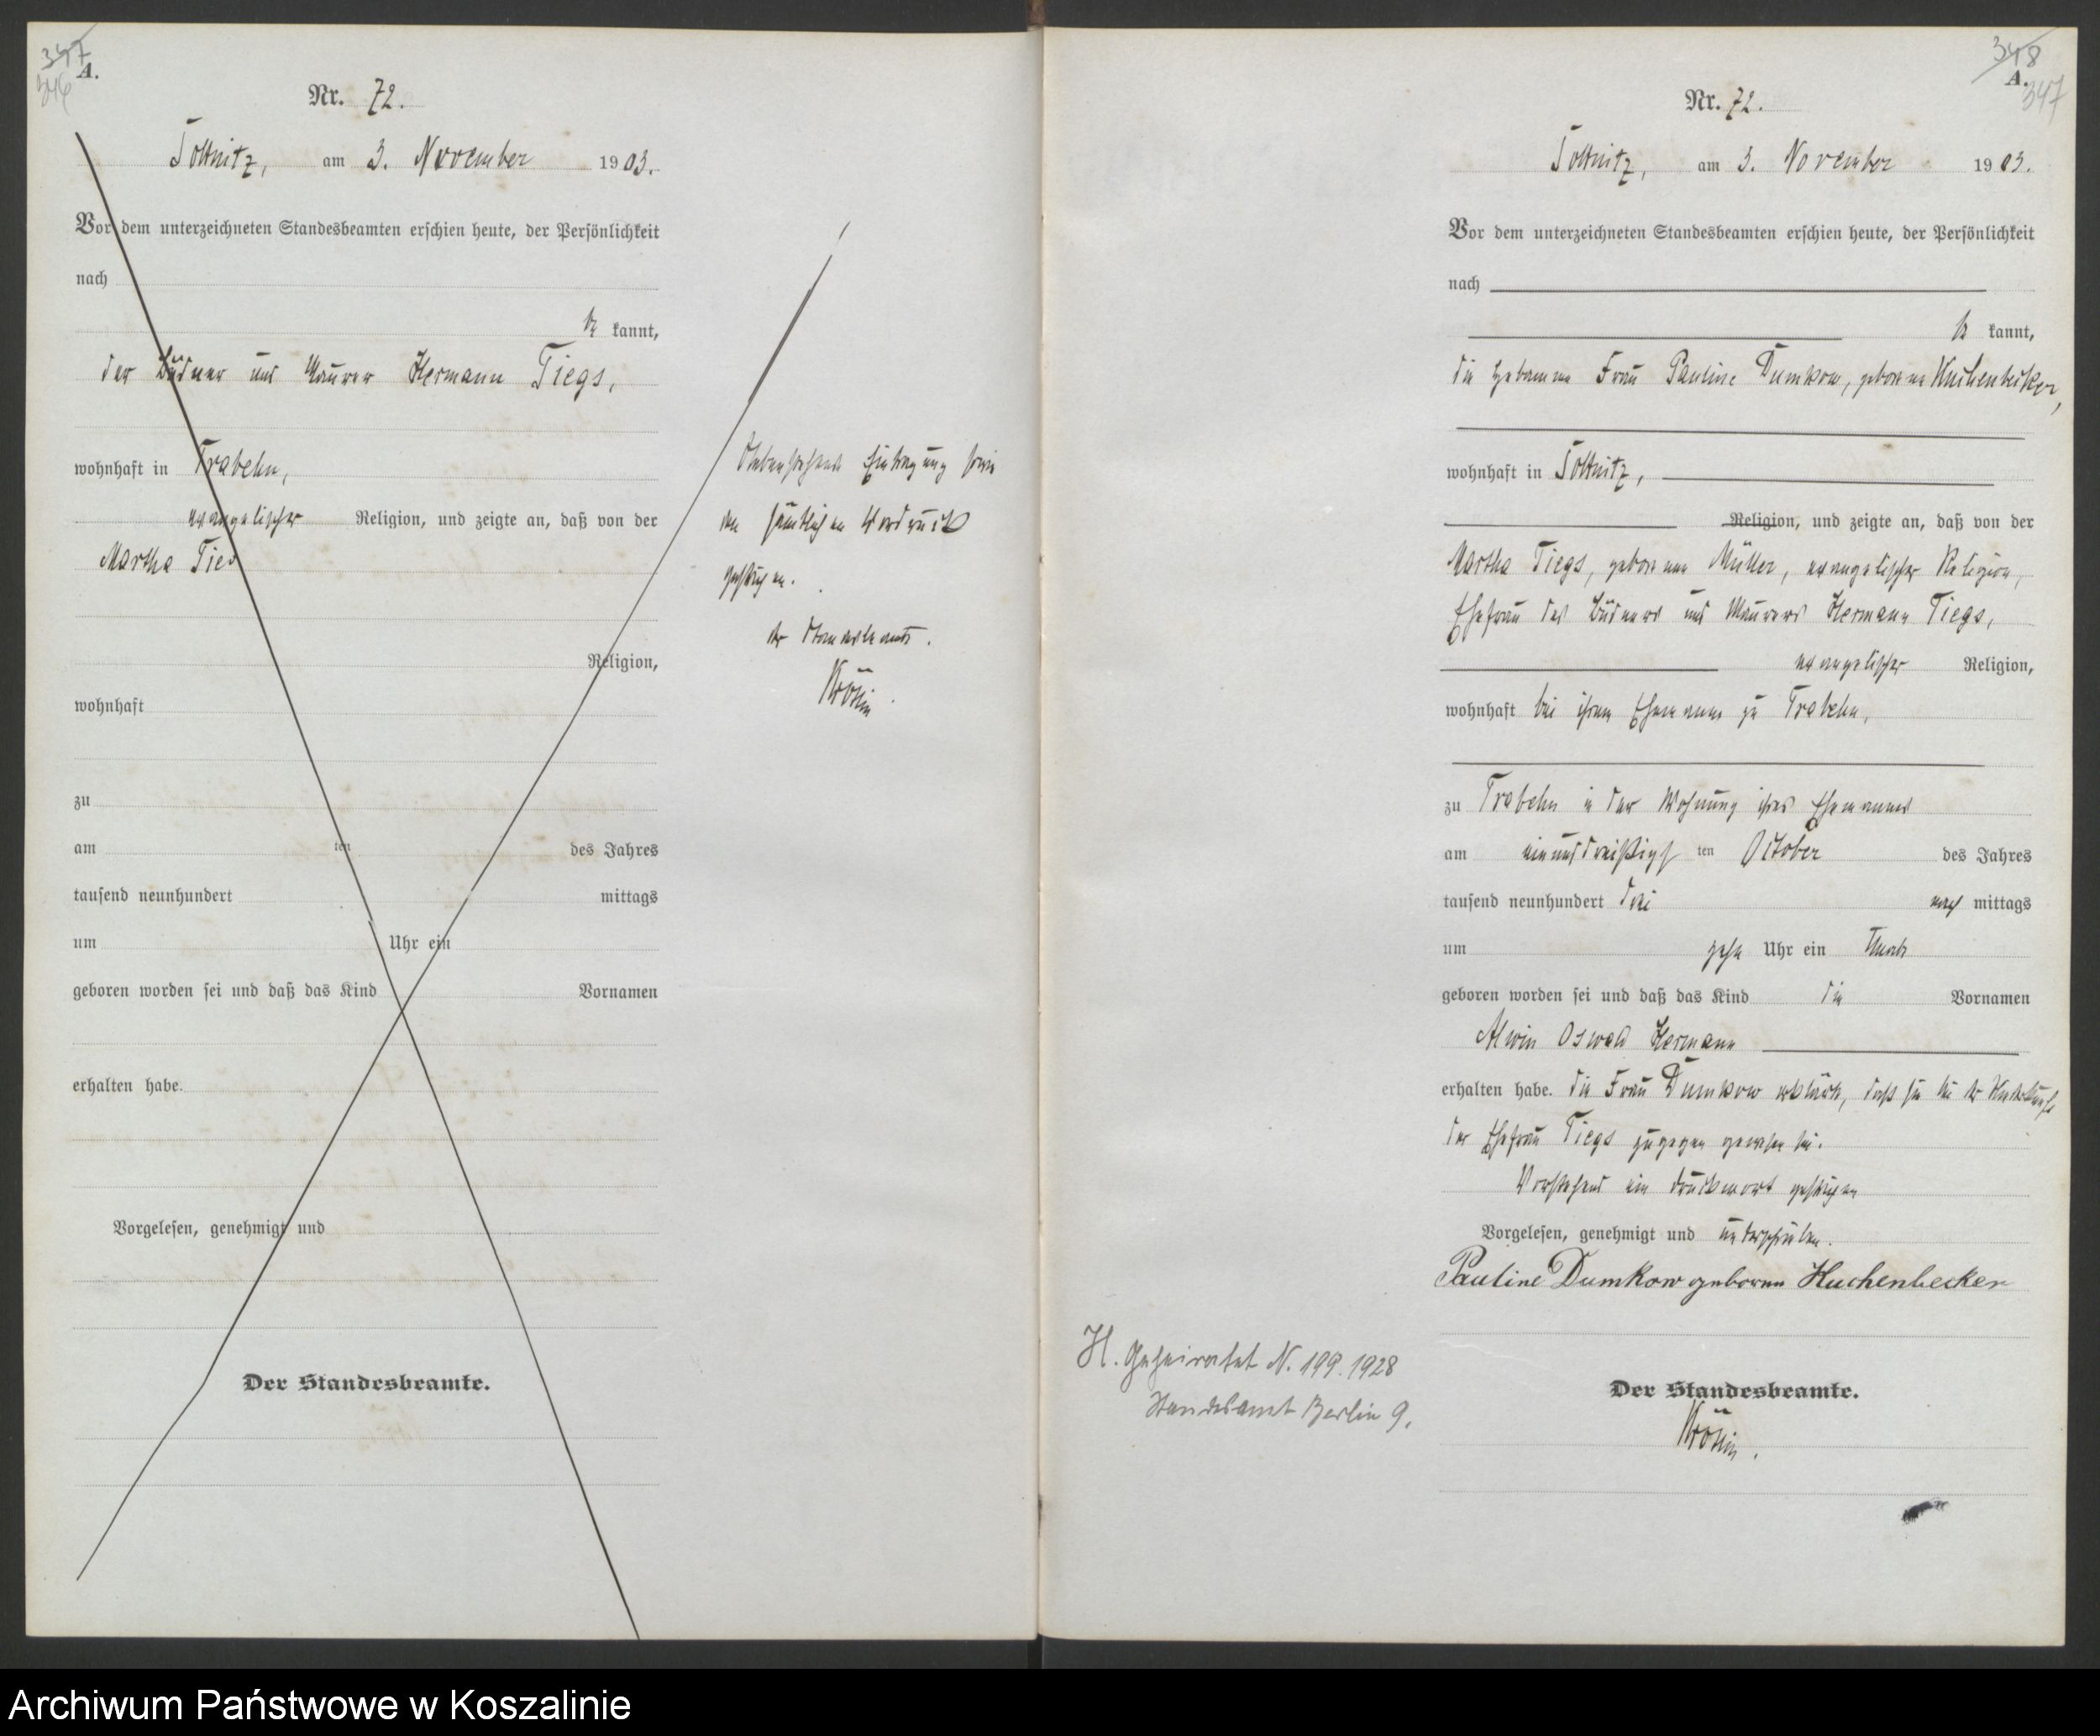 347
346
A.
Nr. 72.
Soltnitz, am 3. November 1903.
Vor dem unterzeichneten Standesbeamten erschien heute, der Persönlichkeit
nach
be kannt,
der Büdner und Maurer Hermann Tiegs,
wohnhaft in Trabehn,
evangelischer Religion, und zeigte an, daß von der
Martha Tie
Religion,
wohnhaft
zu
am ten des Jahres
tausend neunhundert mittags
um Uhr ein
geboren worden sei und daß das Kind Vornamen
erhalten habe.
Vorgelesen, genehmigt und
Der Standesbeamte.
Nebenstehende Eintragung sowie
den sämtlichen Vordruck
gestrichen.
Der Standesbeamte.
348
A.
347
Nr. 72.
Soltnitz, am 3. November 1903.
Vor dem unterzeichneten Standesbeamten erschien heute, der Persönlichkeit
nach
be kannt,
die Hebamme Frau Pauline Dumkow, geborene Kuchenbecker,
wohnhaft in Soltnitz,
Religion, und zeigte an, daß von der
Martha Tiegs, geborenen Müller, evangelischer Religion,
Ehefrau des Büdners und Maurers Hermann Tiegs,
evangelischer Religion,
wohnhaft bei ihrem Ehemanne zu Trabehn,
zu Trabehn in der Wohnung ihres Ehemannes
am einunddreißigs ten October des Jahres
tausend neunhundert drei nach mittags
um zehn Uhr ein Knabe
geboren worden sei und daß das Kind die Vornamen
Alwin Oswald Hermann
erhalten habe. Die Frau Dumkow erklärte, daß sie bei der Niederkunft
der Ehefrau Tiegs zugegen gewesen sei.
Vorstehend ein Druckwort gestrichen
Vorgelesen, genehmigt und unterschrieben.
Pauline Dumkow geborene Kuchenbecker
Der Standesbeamte.
H. Geheiratet N. 199.1928
Standesamt Berlin 9.
Archiwum Państwowe w Koszalinie